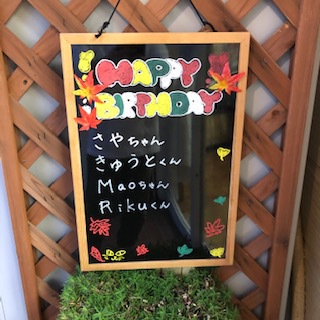 HAPPY
BIRTHDAY
さやちゃん
きゅうとくん
Maoちゃん
Rikuくん